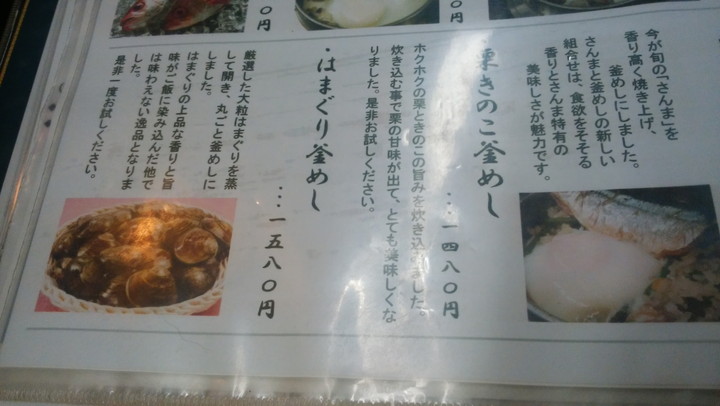 今が旬の「さんま」を
香り高く焼き上げ、
釜めしにしました。
さんまと釜めしの新しい
組合せは、食欲をそそる
香りとさんま特有の
美味しさが魅力です。
栗きのこ釜めし
…一四八〇円
ホクホクの栗ときのこの旨みを炊き込みました。
炊き込む事で栗の甘味が出て、とても美味しくな
りました。是非お試しください。
・はまぐり釜めし
…一五八〇円
厳選した大粒はまぐりを蒸
して開き、丸ごと釜めしに
しました。
はまぐりの上品な香りと旨
味がご飯に染み込んだ他で
は味わえない逸品となりま
した。
是非一度お試しください。
〇円
〇円